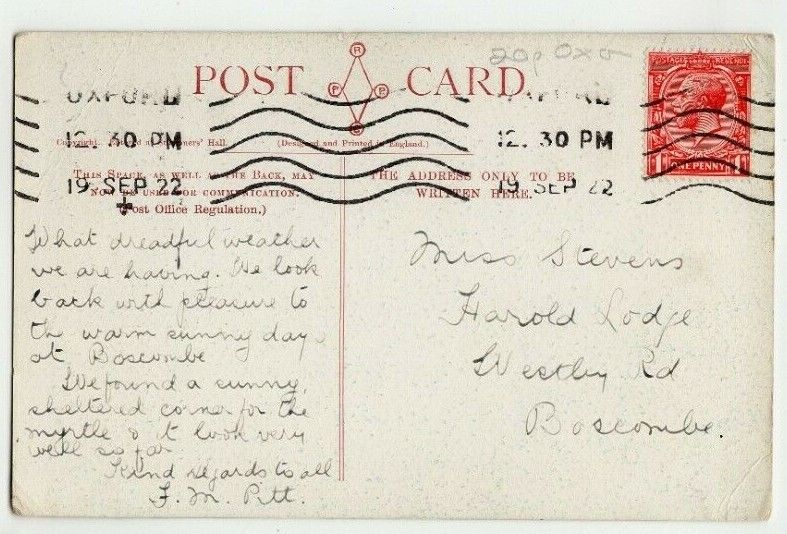 20p Oxo
POST CARD.
R
P P
C
OXFORD
12. 30 PM
19 SEP 22
12. 30 PM
19 SEP 22
POSTAGE REVENUE
ONE PENNY
Copyright. Entered at Stationers' Hall.
(Designed and Printed in England.)
THIS SPACE, AS WELL AS THE BACK, MAY
NOW BE USED FOR COMMUNICATION.
(Post Office Regulation.)
THE ADDRESS ONLY TO BE
WRITTEN HERE.
What dreadful weather
we are having. We look
back with pleasure to
the warm sunny days
at Boscombe
We found a sunny,
sheltered corner for the
myrtle & it look very
well so far
Kind regards to all
F. M. Pitt.
Miss Stevens
Harold Lodge
Westby Rd
Boscombe.